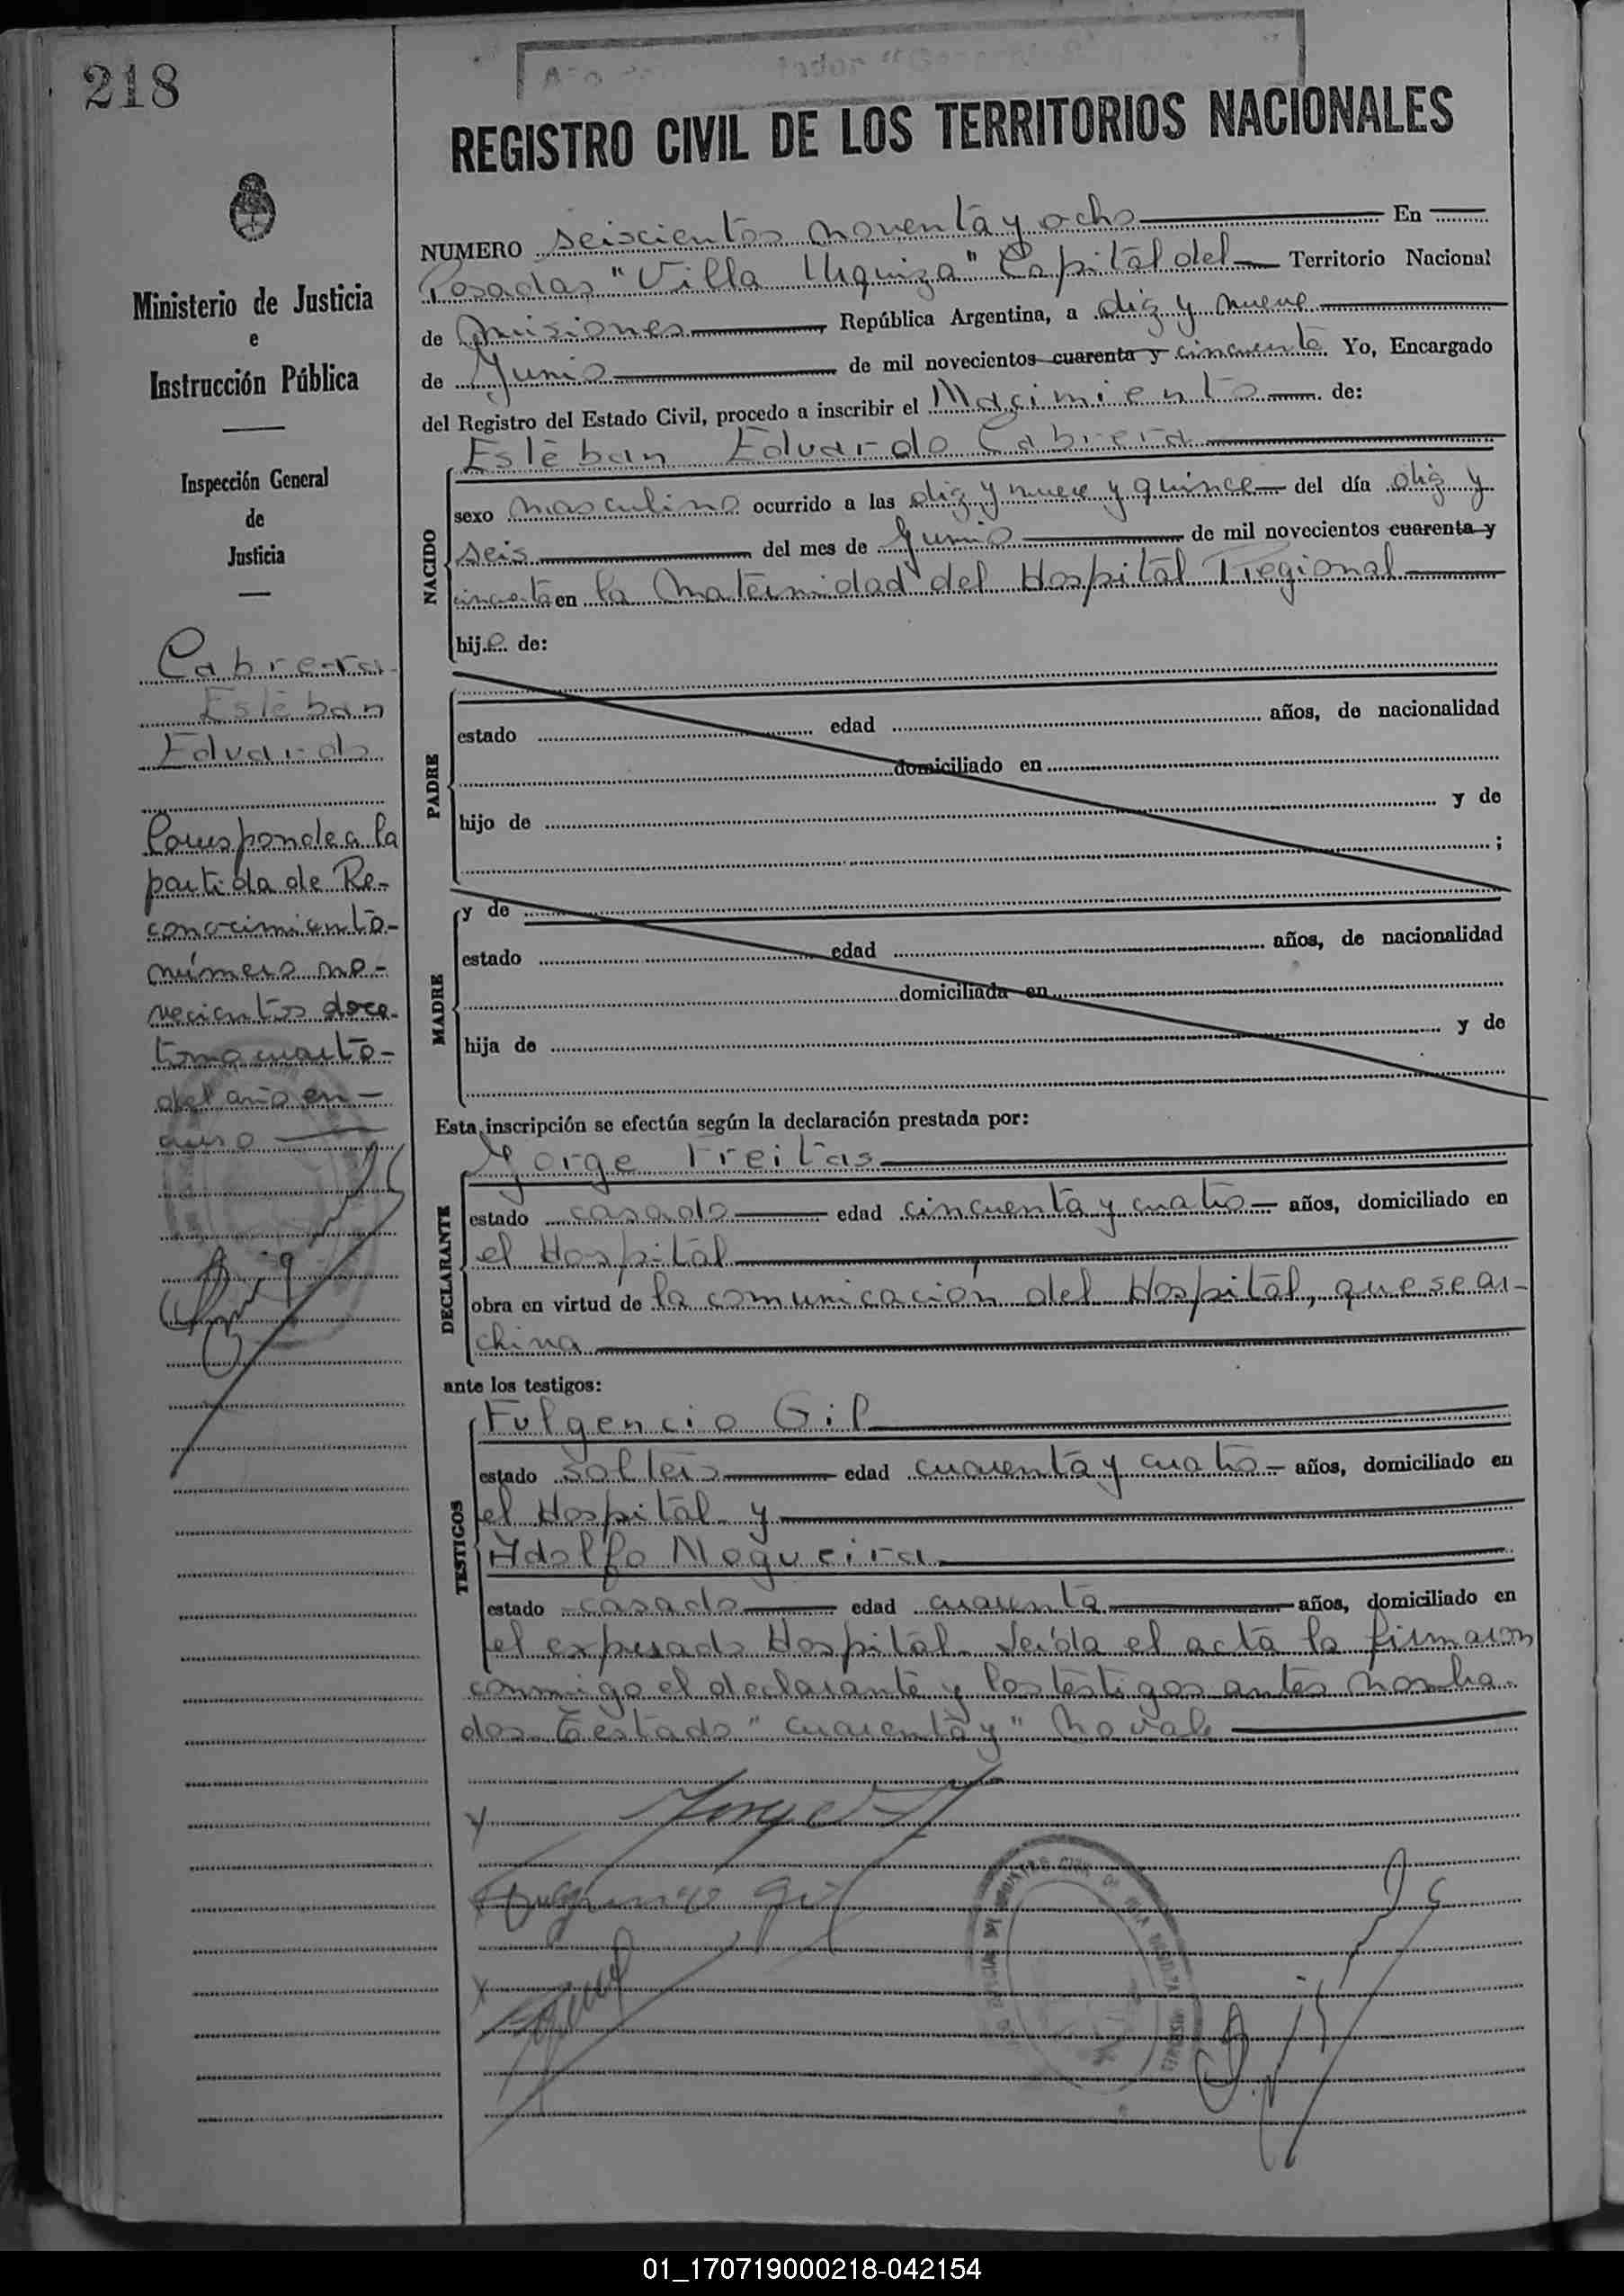 218
REGISTRO CIVIL DE LOS TERRITORIOS NACIONALES
Ministerio de Justicia
e
Instrucción Pública
Inspección General
de
Justicia
Cabrera
Estéban
Eduardo
Corresponde a la
partida de Re-
conocimiento
número no-
vecientos doce
tomo cuarto
del año en
curso
NUMERO seiscientos noventa y ocho En
Posadas "Villa Urquiza" Capital del Territorio Nacional
de Misiones, República Argentina, a diez y nueve
de Junio de mil novecientos cuarenta y cincuenta Yo, Encargado
del Registro del Estado Civil, procedo a inscribir el Nacimiento de:
NACIDO
Estéban Eduardo Cabrera
sexo masculino ocurrido a las diez y nueve y quince del día diez y
seis del mes de Junio de mil novecientos cuarenta y
cincuenta en la Maternidad del Hospital Regional
hijo de:
PADRE
estado edad años, de nacionalidad
domiciliado en
hijo de y de
;
MADRE
y de
estado edad años, de nacionalidad
domiciliada en
hija de y de
Esta inscripción se efectúa según la declaración prestada por:
DECLARANTE
Jorge Freitas
estado casado edad cincuenta y cuatro años, domiciliado en
el Hospital
obra en virtud de la comunicación del Hospital, que se ar-
chiva
ante los testigos:
TESTIGOS
Fulgencio Gil
estado soltero edad cuarenta y cuatro años, domiciliado en
el Hospital y
Adolfo Nogueira
estado casado edad cuarenta años, domiciliado en
el expresado Hospital. Leída el acta la firmaron
conmigo el declarante y los testigos antes nombra-
dos. Testado "cuarenta y" no vale
01_170719000218-042154